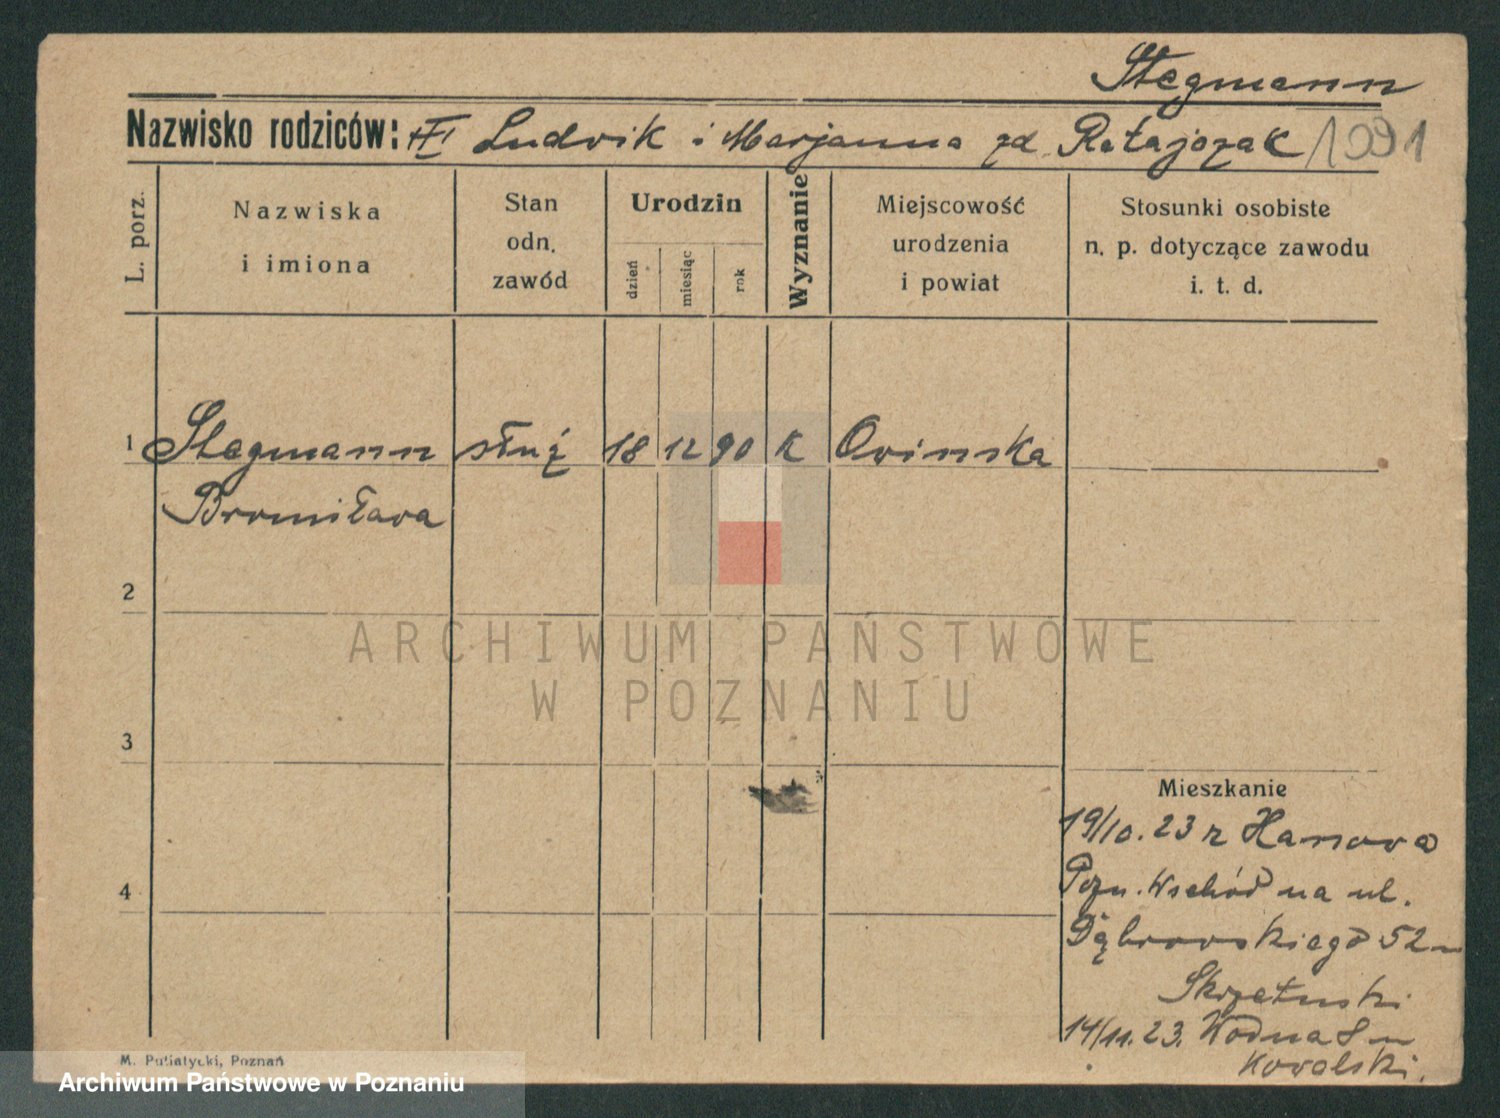 Stegmann
Nazwisko rodziców: Ludwik i Marjanna zd Ratajczak 1991
L. porz.
Nazwiska
i imiona
Stan
odn.
zawód
Urodzin
dzień
miesiąc
rok
Wyznanie
Miejscowość
urodzenia
i powiat
Stosunki osobiste
n. p. dotyczące zawodu
i. t. d.
1 Stegmann służ 18 12 90 K Owinska
Bronisława
2
ARCHIWUM PAŃSTWOWE
W POZNANIU
3
Mieszkanie
19/10.23 z Hanowa
Pozn. Wschód na ul.
4
Dąbrowskiego 52
Skrzetuski
14/11.23. Wodna 8
Kowalski.
M. Putiatycki, Poznań
Archiwum Państwowe w Poznaniu